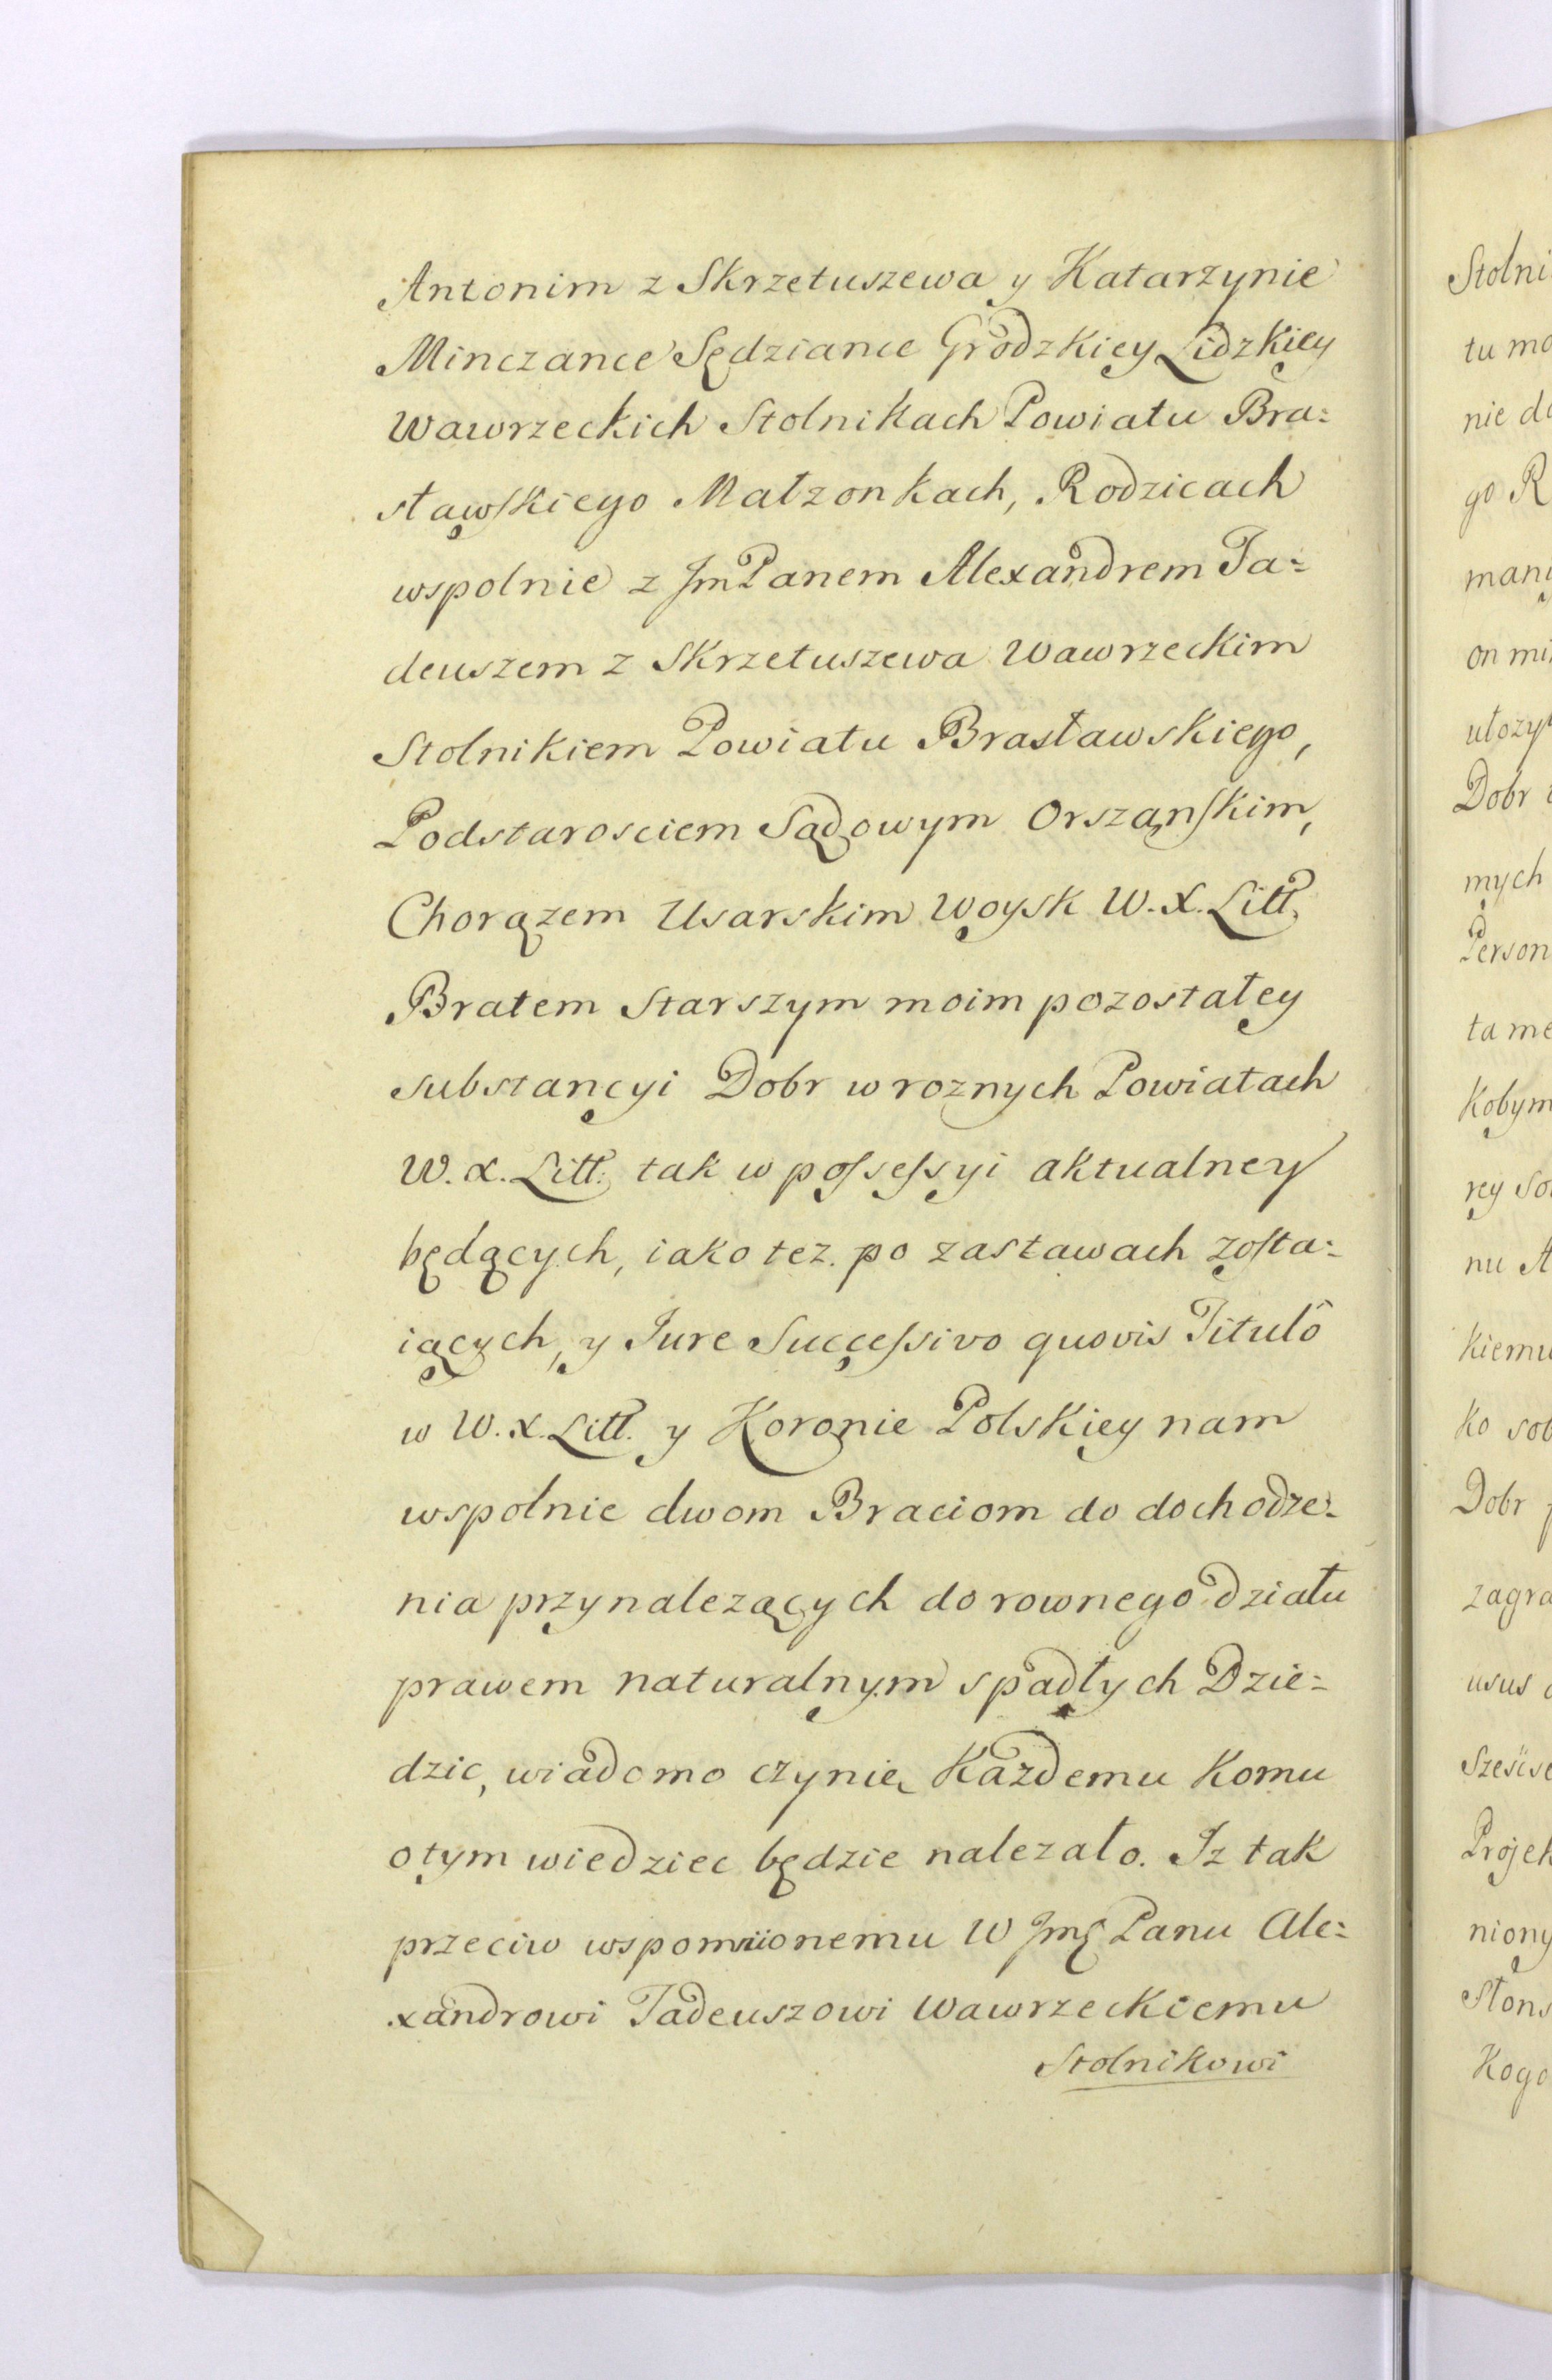 Antonim z Skrzetuszewa y Katarzynie
Minczance Sędziance Grodzkiey Lidzkiey
Wawrzeckich Stolnikach Powiatu Bra=
sławskiego Małzonkach, Rodzicach
wspolnie z JmPanem Alexandrem Ta=
deuszem z Skrzetuszewa Wawrzeckim
Stolnikiem Powiatu Brasławskiego,
Podstarosciem Sądowym Orszanskim,
Chorązem Usarskim Woysk W. X. Litt,
Bratem Starszym moim pozostałey
substancyi Dobr w roznych Powiatach
W. X. Litt. tak w possessyi aktualney
będących, iako tez po zastawach zosta=
iących, y Jure Successivo quovis Titulô
w W. X. Litt. y Koronie Polskiey nam
wspolnie dwom Braciom do dochodze=
nia przynalezących do rownego działu
prawem naturalnym spadłych Dzie=
dzic, wiadomo czynię Kazdemu Komu
o tym wiedziec będzie nalezało. Iz tak
przeciw wspomnionemu W Jmę Panu Ale=
xandrowi Tadeuszowi Wawrzeckiemu
Stolnikowi
Stolni
tu mo
nie do
go R
many
on mi
ułozy
Dobr
mych
Person
ta me
Kobym
rey So
nu A
Kiemu
Ko sob
Dobr
zagra
usus
Sześćse
Projek
niony
Stons
Kogo